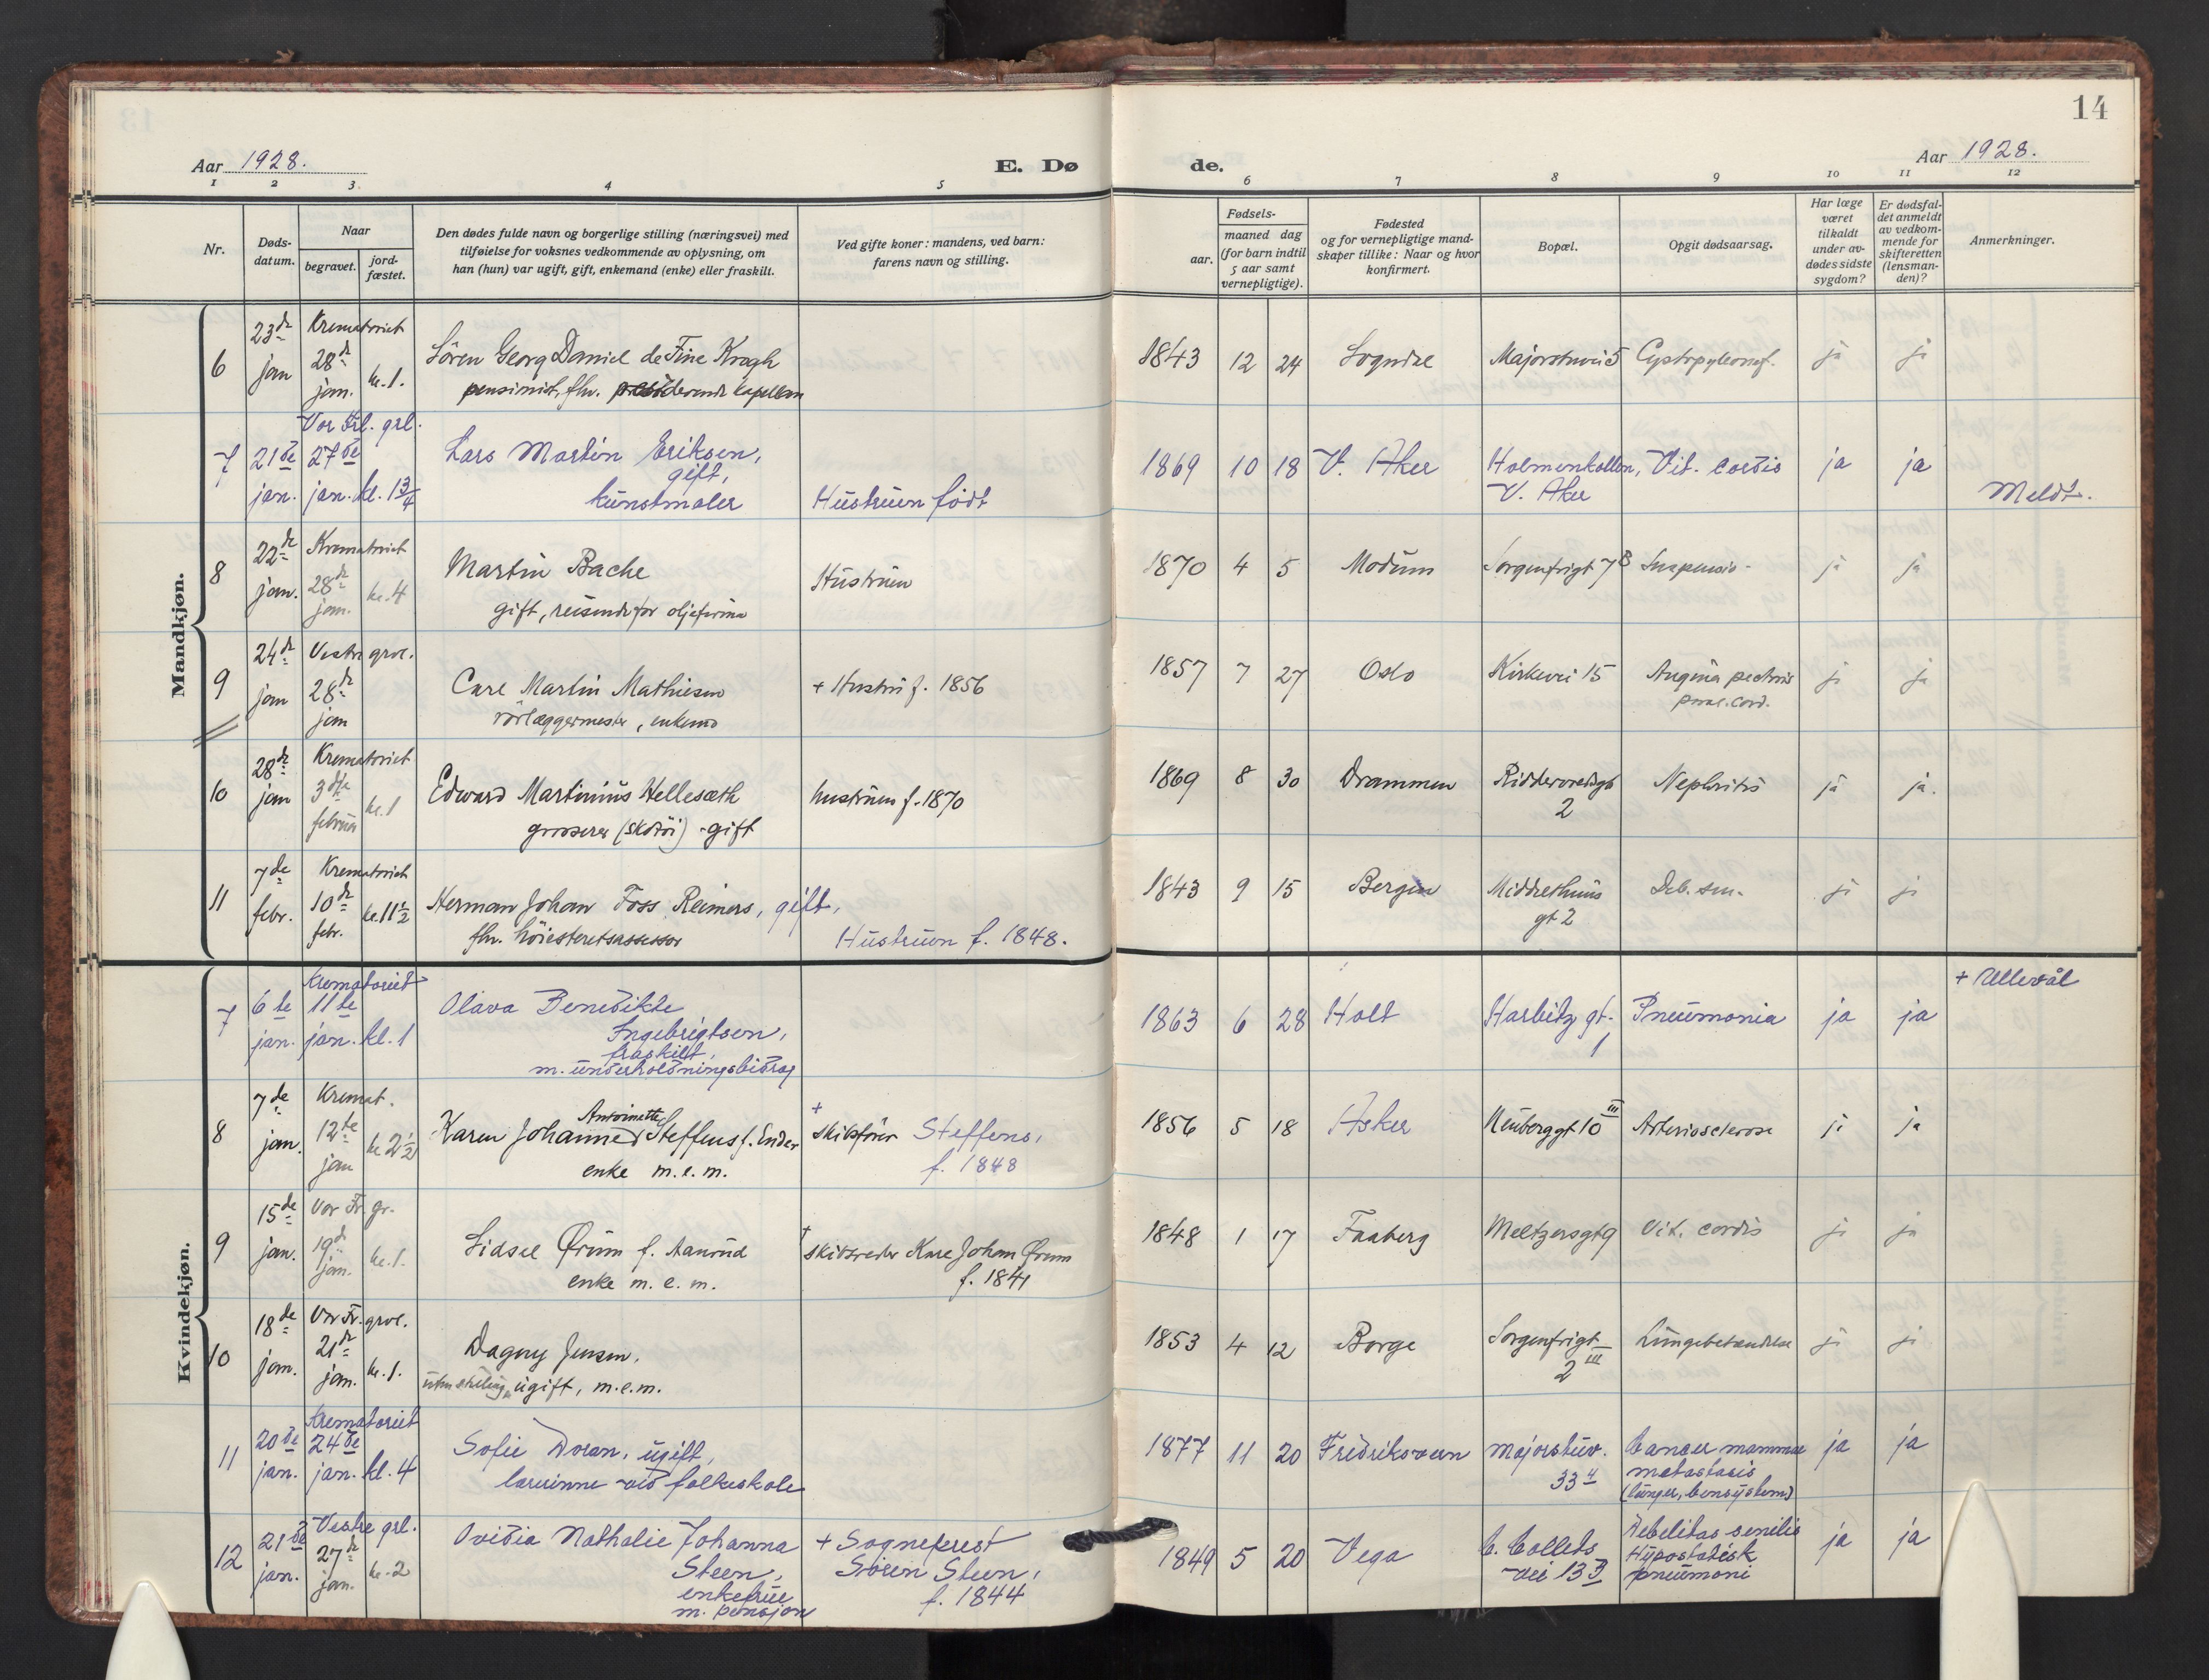 14
Aar 1928.
E. Dø
de.
Aar 1928.
1 2 3. 4 5 6 7 8 9 10 11 12
Nr.
Døds-
datum.
Naar
begravet.
jord-
fæstet.
Den dødes fulde navn og borgerlige stilling (næringsvei) med
tilføielse for voksnes vedkommende av oplysning, om
han (hun) var ugift, gift, enkemand (enke) eller fraskilt.
Ved gifte koner: mandens, ved barn:
farens navn og stilling.
Fødsels-
aar.
maaned dag
(for barn indtil
5 aar samt
vernepligtige).
Fødested
og for vernepligtige mand-
skaper tillike: Naar og hvor
konfirmert.
Bopæl.
Opgit dødsaarsag.
Har læge
været
tilkaldt
under av-
dødes sidste
sygdom?
Er dødsfal-
det anmeldt
av vedkom-
mende for
skifteretten
(lensman-
den)?
Anmerkninger.
Mandkjøn.
6
23de
jan
Krematoriet
28de
jan.
kl. 1.
Sören Georg Daniel de Fine Krogh
pensionist, fhv. residerende kapellan
1843 12 24
Sogndal
Majorstuvei 5
ja ja
7
21de
jan.
Vor Frl. grl.
27de
jan. kl. 1 3/4
Lars Martin Eriksen,
gift,
kunstmaler
Hustruen født
1869 10 18
V. Aker
Holmenkollen,
V. Aker
Vit. cordis
ja ja
Meldt.
8
22de
jan.
Krematoriet
28de
jan.
kl. 4
Martin Bache
gift, reisende for oljefirma
Hustruen
1870 4 5
Modum
Sorgenfrigt 7 B
Suspensio -
ja ja
9
24de
jan
Vestre grvl.
28de
jan
Carl Martin Mathiesen
rörlæggermester, enkem
+ Hustru f. 1856
1857 7 27
Oslo
Kirkevei 15
Angina pectoris
ja ja
10
28de
jan
Krematoriet
3dte
februar
kl. 1
Edward Martinius Hellesæth
grosserer (skotöi) - gift
hustruen f. 1870
1869 8 30
Drammen
Riddervoldsgt
2
Nephritis
ja ja.
11
7de
febr.
Krematoriet
10de
febr.
kl. 11 1/2
Herman Johan Foss Reimers, gift,
fhv. höiesteretsassessor
Hustruen f. 1848.
1843 9 15
Bergen
Middelthuns
gt 2
Deb. sen.
ja ja
Kvindekjøn.
7
6te
jan.
Krematoriet
11te
jan. kl. 1
Olava Benedikte
Ingebrigtsen,
fraskilt,
m. underholdningsbidrag
1863 6 28
Holt
Harbitz gt.
1
Pneumonia
ja ja
+ Ullevål
8
7de
jan.
Kremat.
12te
jan
kl 2 1/2
Antoinette
Karen Johanne Steffens f. Ender
enke m. e. m.
+
skibsförer Steffens,
f. 1848
1856 5 18
Asker
Neuberggt 10 III
Arteriosclerose
ja ja
9
15de
jan.
Vor Fr. gr.
19de
jan.
kl. 1.
Sidsel Ørum f. Aanrud
enke m. e. m.
+
skibsreder Karl Johan Ørum
f. 1841
1848 1 17
Faaberg
Meltzersgt 9
Vit. cordis
ja ja
10
18de
jan.
Vor Fr. grvl.
21de
jan.
kl. 1.
Dagny Jensen,
ugift, m.e.m.
1853 4 12
Borge
Sorgenfrigt
2 III
Lungebetændelse
ja ja
11
20de
jan.
Krematoriet
24de
jan. kl. 4
Sofie Doran, ugift,
lærerinne ved folkeskole
1877 11 20
Fredriksvern
Majorstuv.
33 4
Cancer mammae
metastasis
(lunger, bensystem)
ja ja
12
21de
jan.
Vestre grl.
27de
jan.
kl. 2
Ovidia Nathalie Johanna
Steen,
enkefrue
m. pensjon
+ Sogneprest
Sören Steen,
f. 1844
1849 5 20
Vega
C. Colletts
vei 13
Debelitas senilis
Hypostatisk
pneumoni
ja ja